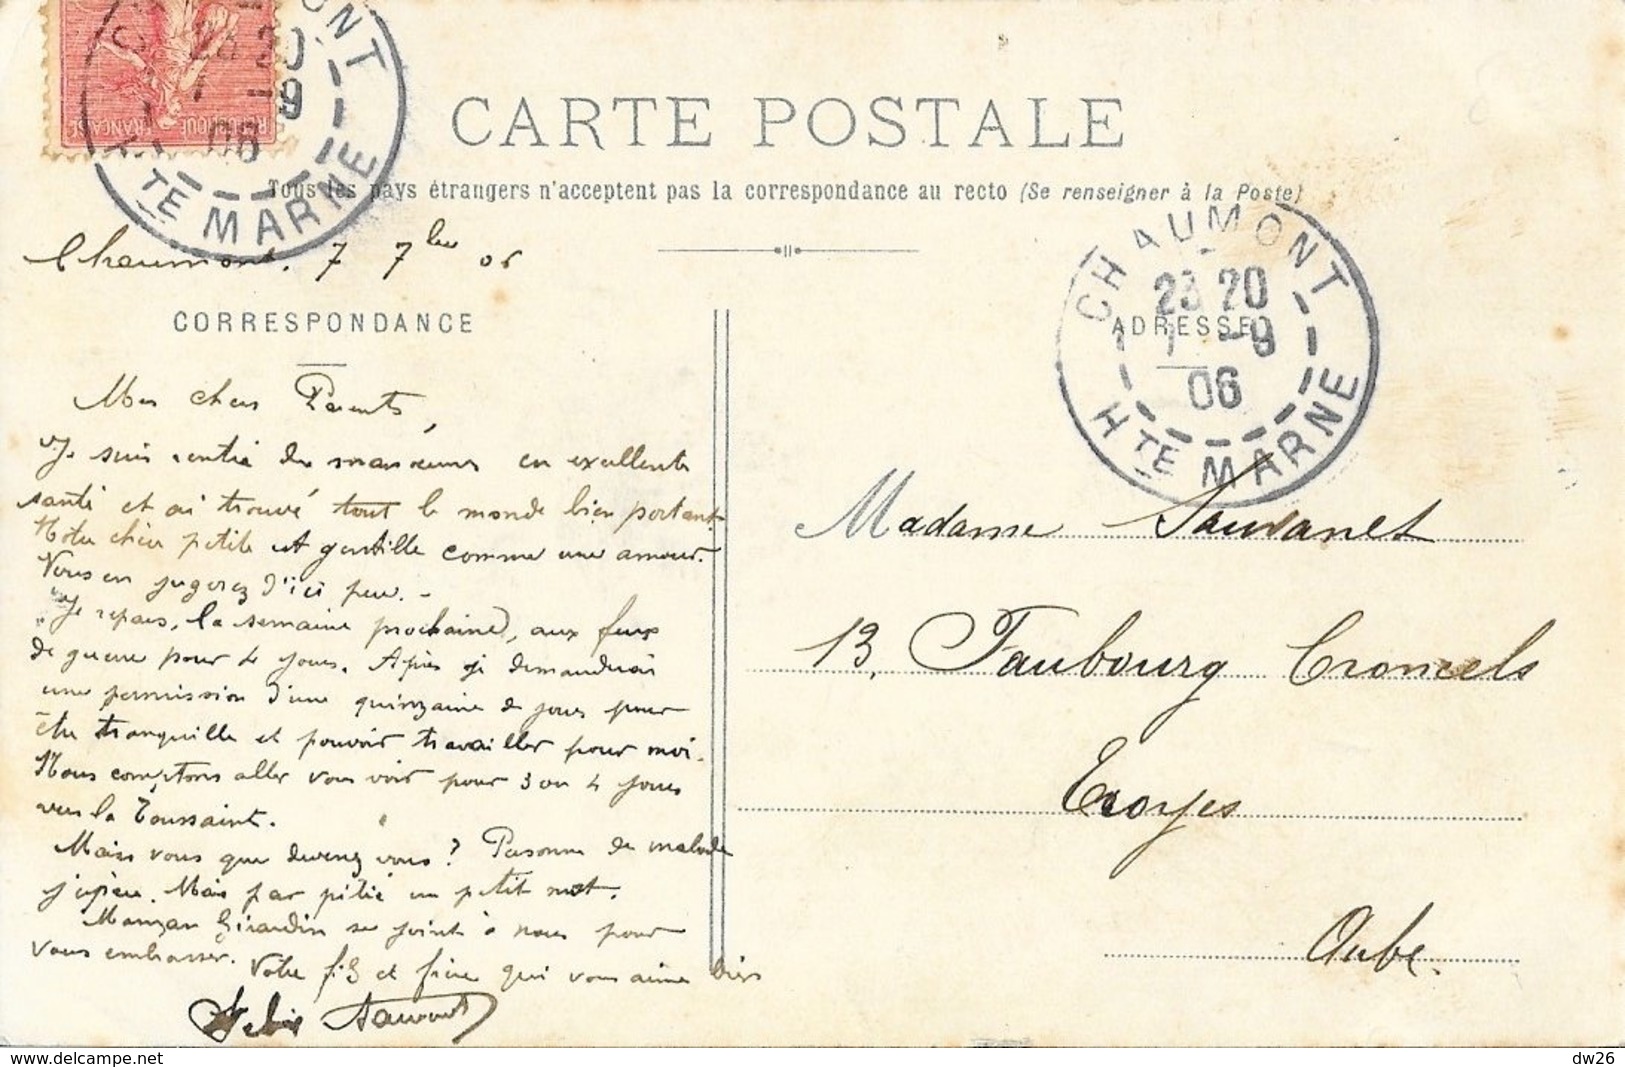 CARTE POSTALE
Tous les pays étrangers n'acceptent pas la correspondance au recto (Se renseigner à la Poste)
RÉPUBLIQUE FRANÇAISE
CHAUMONT
23 20
7 -9
06
HTE MARNE
Chaumont. 7 7bre 06
CORRESPONDANCE
Mes chers Parents,
Je suis rentré des manœuvres en excellente
santé et ai trouvé tout le monde bien portant.
Notre chère petite est gentille comme une amour.
Vous en jugerez d'ici peu. -
Je repars, la semaine prochaine, aux feux
de guerre pour 4 jours. Après je demanderai
une permission d'une quinzaine de jours pour
être tranquille et pouvoir travailler pour moi.
Nous comptons aller vous voir pour 3 ou 4 jours
vers la Toussaint.
Mais vous que devenez vous ? Personne de malade
j'espère. Mais par pitié un petit mot.
Maman Girardin se joint à nous pour
vous embrasser. Votre fils et frère qui vous aime bien
ADRESSE
CHAUMONT
23 20
7 -9
06
HTE MARNE
Madame Sauvanet
13, Faubourg Croncels
Troyes
Aube.
delcampe.net
dw26